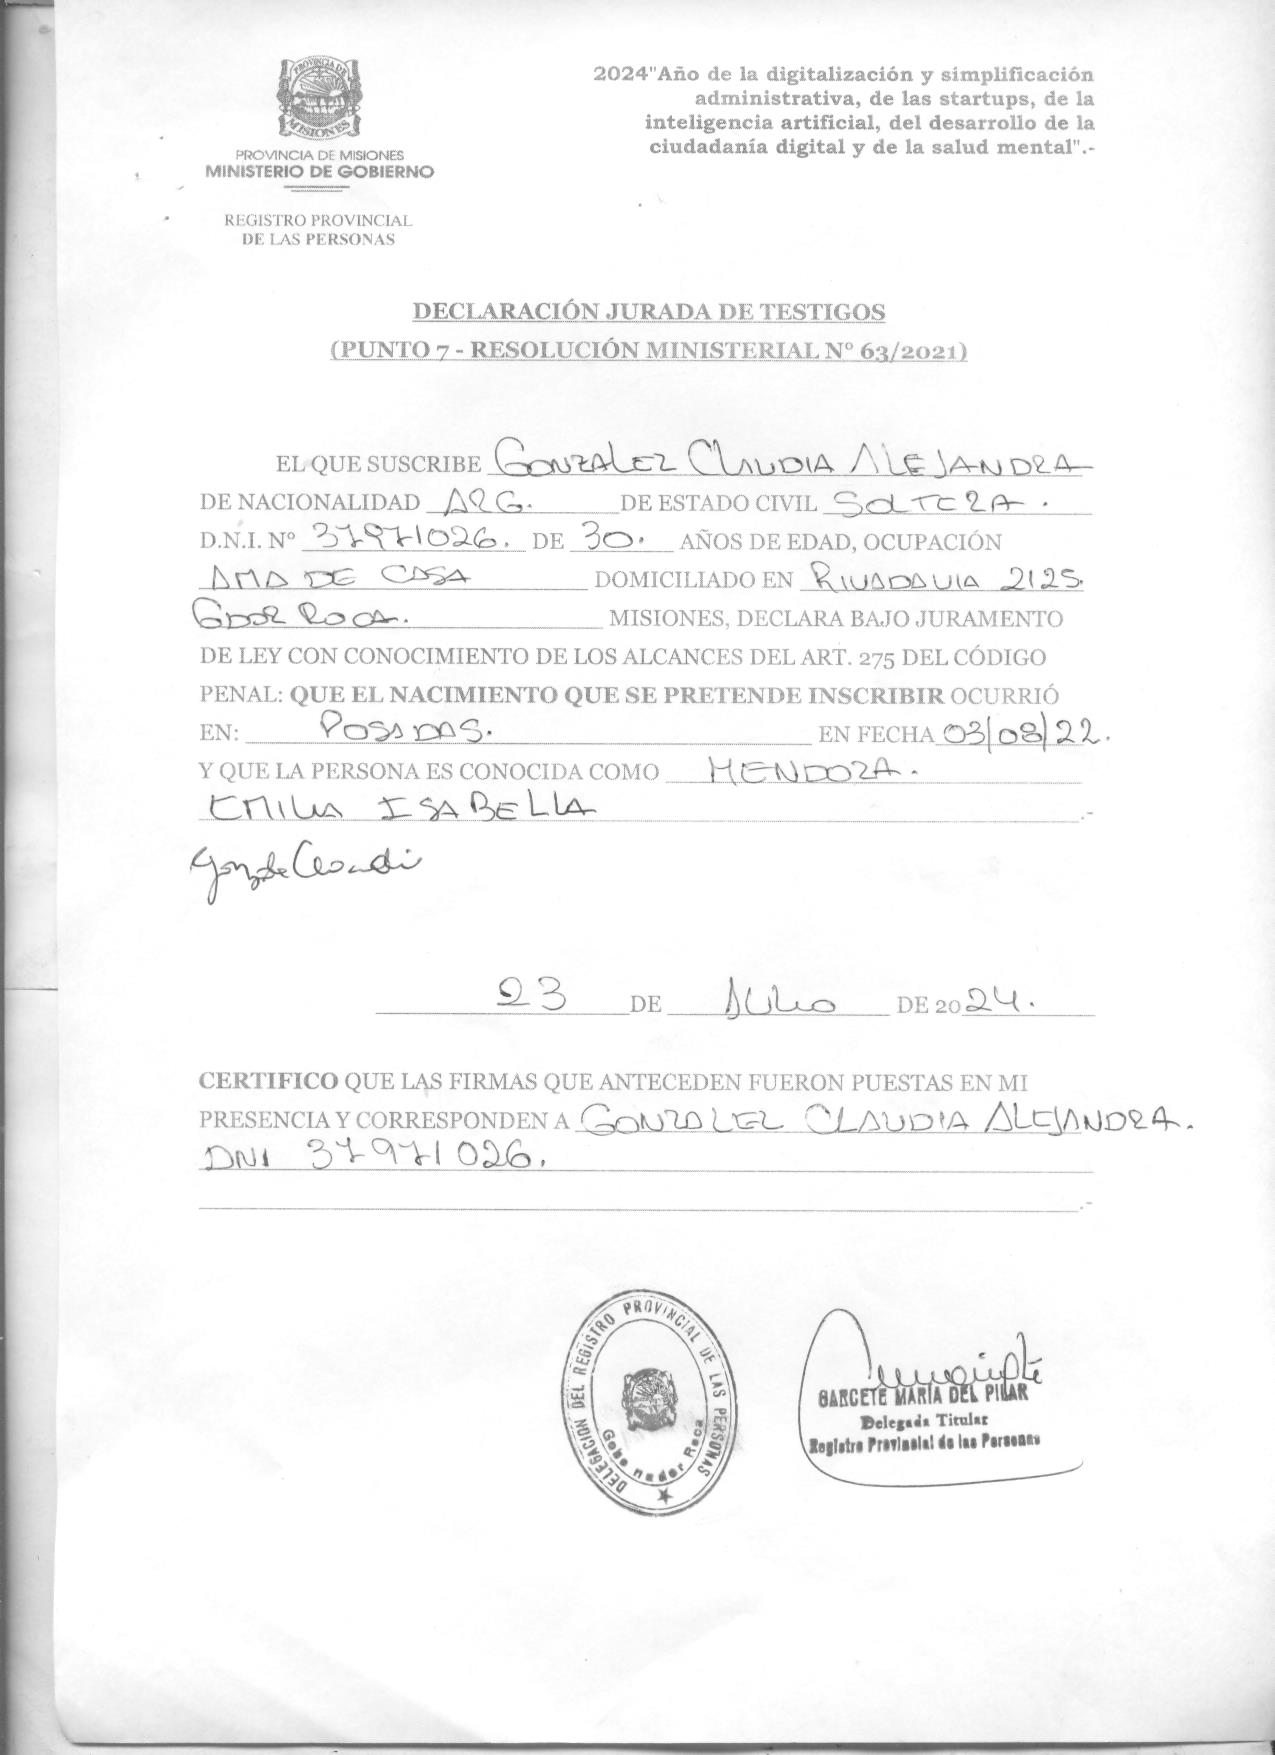 PROVINCIA DE MISIONES
PROVINCIA DE MISIONES
MINISTERIO DE GOBIERNO
REGISTRO PROVINCIAL
DE LAS PERSONAS
2024"Año de la digitalización y simplificación
administrativa, de las startups, de la
inteligencia artificial, del desarrollo de la
ciudadanía digital y de la salud mental".-
DECLARACIÓN JURADA DE TESTIGOS
(PUNTO 7 - RESOLUCIÓN MINISTERIAL N° 63/2021)
EL QUE SUSCRIBE GONZALEZ CLAUDIA ALEJANDRA
DE NACIONALIDAD ARG. DE ESTADO CIVIL SOLTERA.
D.N.I. N° 37971026. DE 30. AÑOS DE EDAD, OCUPACIÓN
AMA DE CASA DOMICILIADO EN RIVADAVIA 2125.
GDOR ROCA. MISIONES, DECLARA BAJO JURAMENTO
DE LEY CON CONOCIMIENTO DE LOS ALCANCES DEL ART. 275 DEL CÓDIGO
PENAL: QUE EL NACIMIENTO QUE SE PRETENDE INSCRIBIR OCURRIÓ
EN: POSADAS. EN FECHA 03/08/22.
Y QUE LA PERSONA ES CONOCIDA COMO MENDOZA.
EMILIA ISABELLA .-
23 DE JULIO DE 2024.
CERTIFICO QUE LAS FIRMAS QUE ANTECEDEN FUERON PUESTAS EN MI
PRESENCIA Y CORRESPONDEN A GONZALEZ CLAUDIA ALEJANDRA.
DNI 37971026.
.-
DELEGACION DEL REGISTRO PROVINCIAL DE LAS PERSONAS
Gobernador Roca
GARCETE MARÍA DEL PILAR
Delegada Titular
Registro Provincial de las Personas